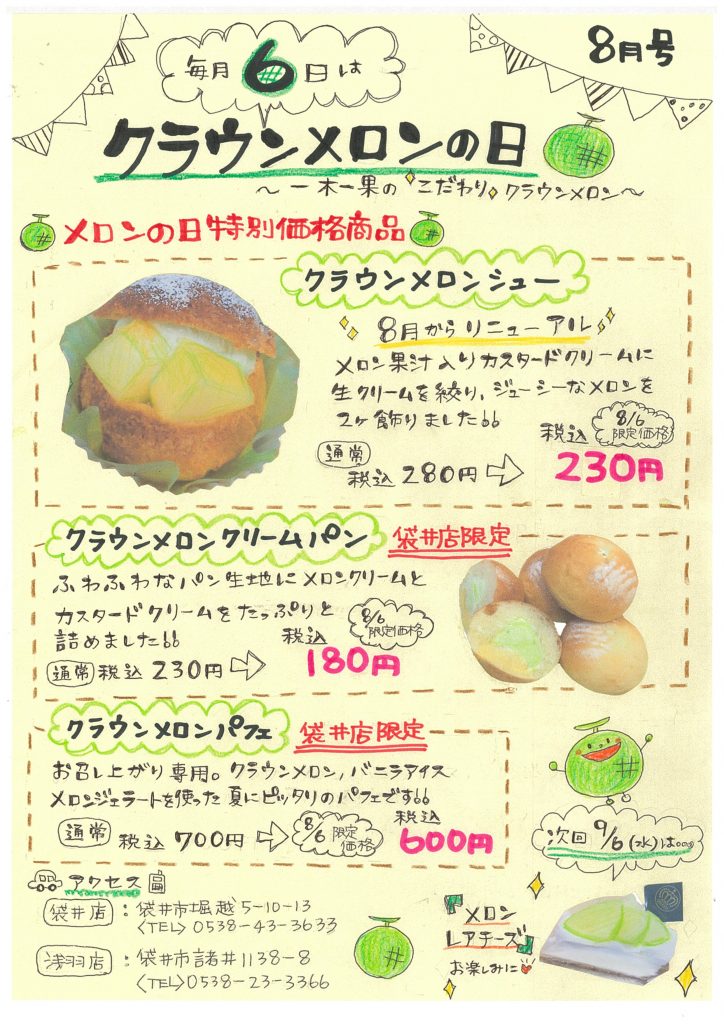 8月号
毎月6日は
クラウンメロンの日
～一木一果の こだわり クラウンメロン～
メロンの日特別価格商品
クラウンメロンシュー
8月からリニューアル
メロン果汁入りカスタードクリームに
生クリームを絞り、ジューシーなメロンを
2ヶ飾りました!!
通常 税込 280円
8/6 限定価格
税込 230円
クラウンメロンクリームパン 袋井店限定
ふわふわなパン生地にメロンクリームと
カスタードクリームをたっぷりと
詰めました!!
通常 税込 230円
8/6 限定価格
税込 180円
クラウンメロンパフェ 袋井店限定
お召し上がり専用。クラウンメロン、バニラアイス
メロンジェラートを使った夏にピッタリのパフェです!!
通常 税込 700円
8/6 限定価格
税込 600円
次回 9/6(水)は...
アクセス
袋井店 : 袋井市堀越 5-10-13
<TEL> 0538-43-3633
浅羽店 : 袋井市諸井 1138-8
<TEL> 0538-23-3366
『メロン
レアチーズ』
お楽しみに